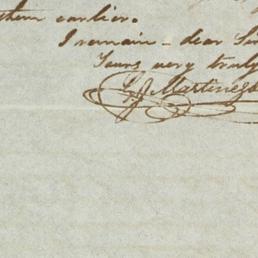 them earlier.
I remain – dear Sir
Yours very truly
Martinez